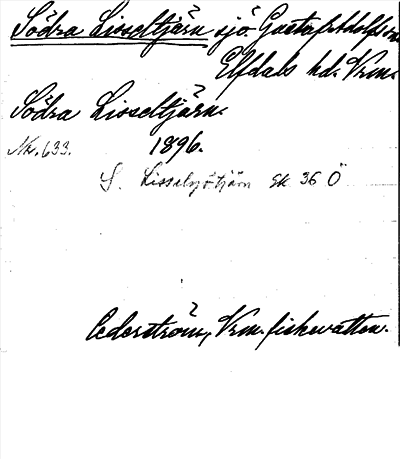 Södra Lisseltjärn sjö Gustaf Adolfs sn
Elfdals hd. Vrm.
Södra Lisseltjärn.
Nr. 633. 1896.
S. Lisselsjötjärn Ek 36 Ö
Cederström, Vrm. fiskevatten.